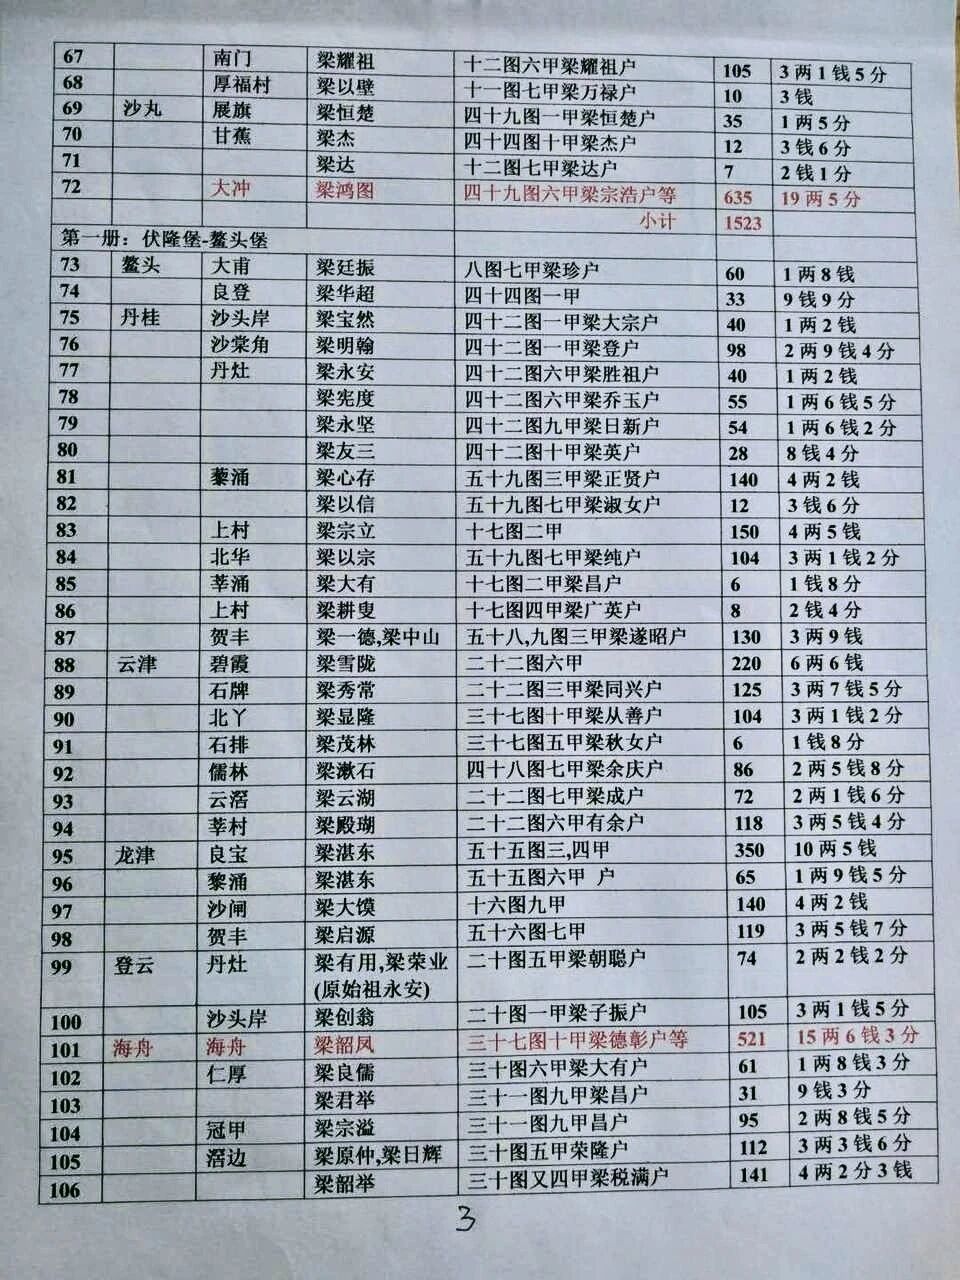 67 南门 梁耀祖 十二图六甲梁耀祖户 105 3两1钱5分
68 厚福村 梁以壁 十一图七甲梁万禄户 10 3钱
69 沙丸 展旗 梁恒楚 四十九图一甲梁恒楚户 35 1两5分
70 甘蕉 梁杰 四十四图十甲梁杰户 12 3钱6分
71 梁达 十二图七甲梁达户 7 2钱1分
72 大冲 梁鸿图 四十九图六甲梁宗浩户等 635 19两5分
小计 1523
第一册：伏隆堡-鳌头堡
73 鳌头 大甫 梁廷振 八图七甲梁珍户 60 1两8钱
74 良登 梁华超 四十四图一甲 33 9钱9分
75 丹桂 沙头岸 梁宝然 四十二图一甲梁大宗户 40 1两2钱
76 沙棠角 梁明翰 四十二图一甲梁登户 98 2两9钱4分
77 丹灶 梁永安 四十二图六甲梁胜祖户 40 1两2钱
78 梁宪度 四十二图六甲梁乔玉户 55 1两6钱5分
79 梁永坚 四十二图九甲梁日新户 54 1两6钱2分
80 梁友三 四十二图十甲梁英户 28 8钱4分
81 藜涌 梁心存 五十九图三甲梁正贤户 140 4两2钱
82 梁以信 五十九图七甲梁淑女户 12 3钱6分
83 上村 梁宗立 十七图二甲 150 4两5钱
84 北华 梁以宗 五十九图七甲梁纯户 104 3两1钱2分
85 莘涌 梁大有 十七图二甲梁昌户 6 1钱8分
86 上村 梁耕叟 十七图四甲梁广英户 8 2钱4分
87 贺丰 梁一德,梁中山 五十八,九图三甲梁遂昭户 130 3两9钱
88 云津 碧霞 梁雪陇 二十二图六甲 220 6两6钱
89 石牌 梁秀常 二十二图三甲梁同兴户 125 3两7钱5分
90 北丫 梁显隆 三十七图十甲梁从善户 104 3两1钱2分
91 石排 梁茂林 三十七图五甲梁秋女户 6 1钱8分
92 儒林 梁漱石 四十八图七甲梁余庆户 86 2两5钱8分
93 云滘 梁云湖 二十二图七甲梁成户 72 2两1钱6分
94 莘村 梁殿瑚 二十二图六甲有余户 118 3两5钱4分
95 龙津 良宝 梁湛东 五十五图三,四甲 350 10两5钱
96 黎涌 梁湛东 五十五图六甲 户 65 1两9钱5分
97 沙闸 梁大馍 十六图九甲 140 4两2钱
98 贺丰 梁启源 五十六图七甲 119 3两5钱7分
99 登云 丹灶 梁有用,梁荣业 二十图五甲梁朝聪户 74 2两2钱2分
(原始祖永安)
100 沙头岸 梁创翁 二十图一甲梁子振户 105 3两1钱5分
101 海舟 海舟 梁韶凤 三十七图十甲梁德彰户等 521 15两6钱3分
102 仁厚 梁良儒 三十图六甲梁大有户 61 1两8钱3分
103 梁君举 三十一图九甲梁昌户 31 9钱3分
104 冠甲 梁宗溢 三十一图九甲昌户 95 2两8钱5分
105 滘边 梁原仲,梁日辉 三十图五甲荣隆户 112 3两3钱6分
106 梁韶举 三十图又四甲梁税满户 141 4两2分3钱
3